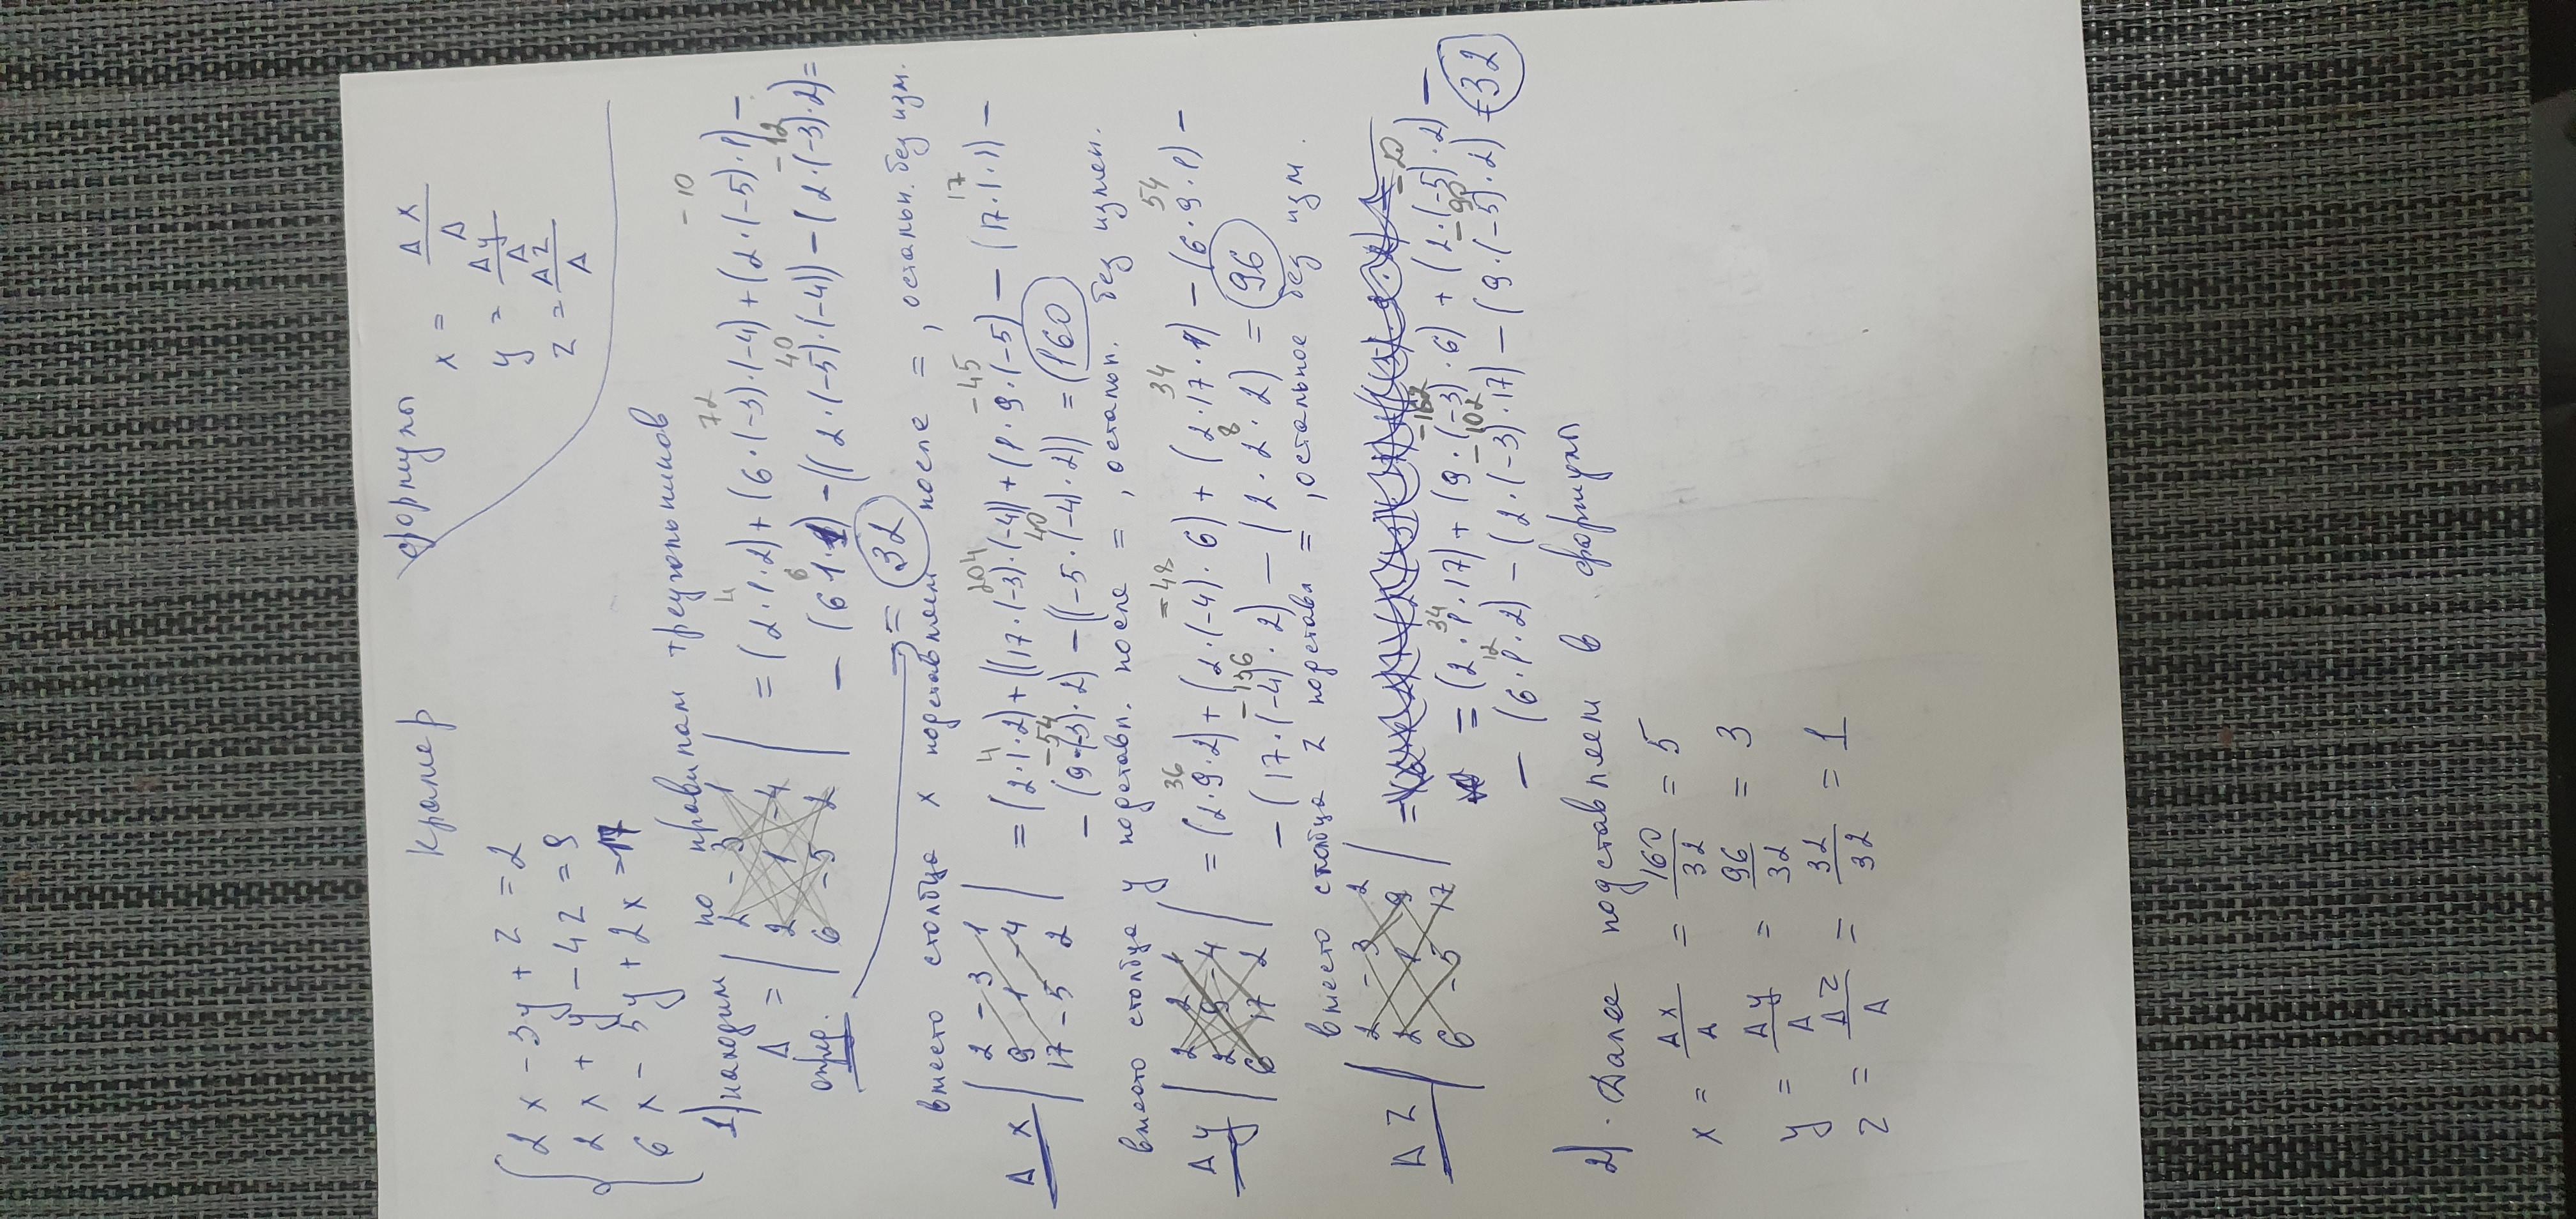 Крамер
формулы
x = Δx/Δ
y = Δy/Δ
z = Δz/Δ
2x - 3y + z = 2
2x + y - 4z = 9
6x - 5y + 2x = 17
1) находим по правилам треугольников
-10
4 72
Δ = | 2 -3 1 | = (2·1·2) + (6·(-3)·(-4)) + (2·(-5)·1) -
опред. | 2 1 -4 |
6 40 -12
| 6 -5 2 | - (6·1·1) - ((2·(-5)·(-4)) - (2·(-3)·2) =
= 32
вместо столбца x подставляем после =, остальн. без изм.
4 204 -45 17
Δx | 2 -3 1 | = (2·1·2) + ((17·(-3)·(-4)) + (1·9·(-5) - (17·1·1) -
| 9 1 -4 |
-54 40
| 17 -5 2 | - (9·(-3)·2) - ((-5·(-4)·2)) = 160
вместо столбца y подставл. после =, остальн. без измен.
36 -48 34 54
Δy | 2 2 1 | = (2·9·2) + (2·(-4)·6) + (2·17·1) - (6·9·1) -
| 2 9 -4 |
-136 8
| 6 17 2 | - (17·(-4)·2) - (2·2·2) = 96
вместо столбца z подставл =, остальное без изм.
Δz | 2 -3 2 | =
| 2 1 9 |
| 6 -5 17 |
34 -162 -20
= (2·1·17) + (9·(-3)·6) + (2·(-5)·2) -
12 -102 -90
- (6·1·2) - (2·(-3)·17) - (9·(-5)·2) = 32
2). Далее подставляем в формулы
x = Δx/Δ = 160/32 = 5
y = Δy/Δ = 96/32 = 3
z = Δz/Δ = 32/32 = 1